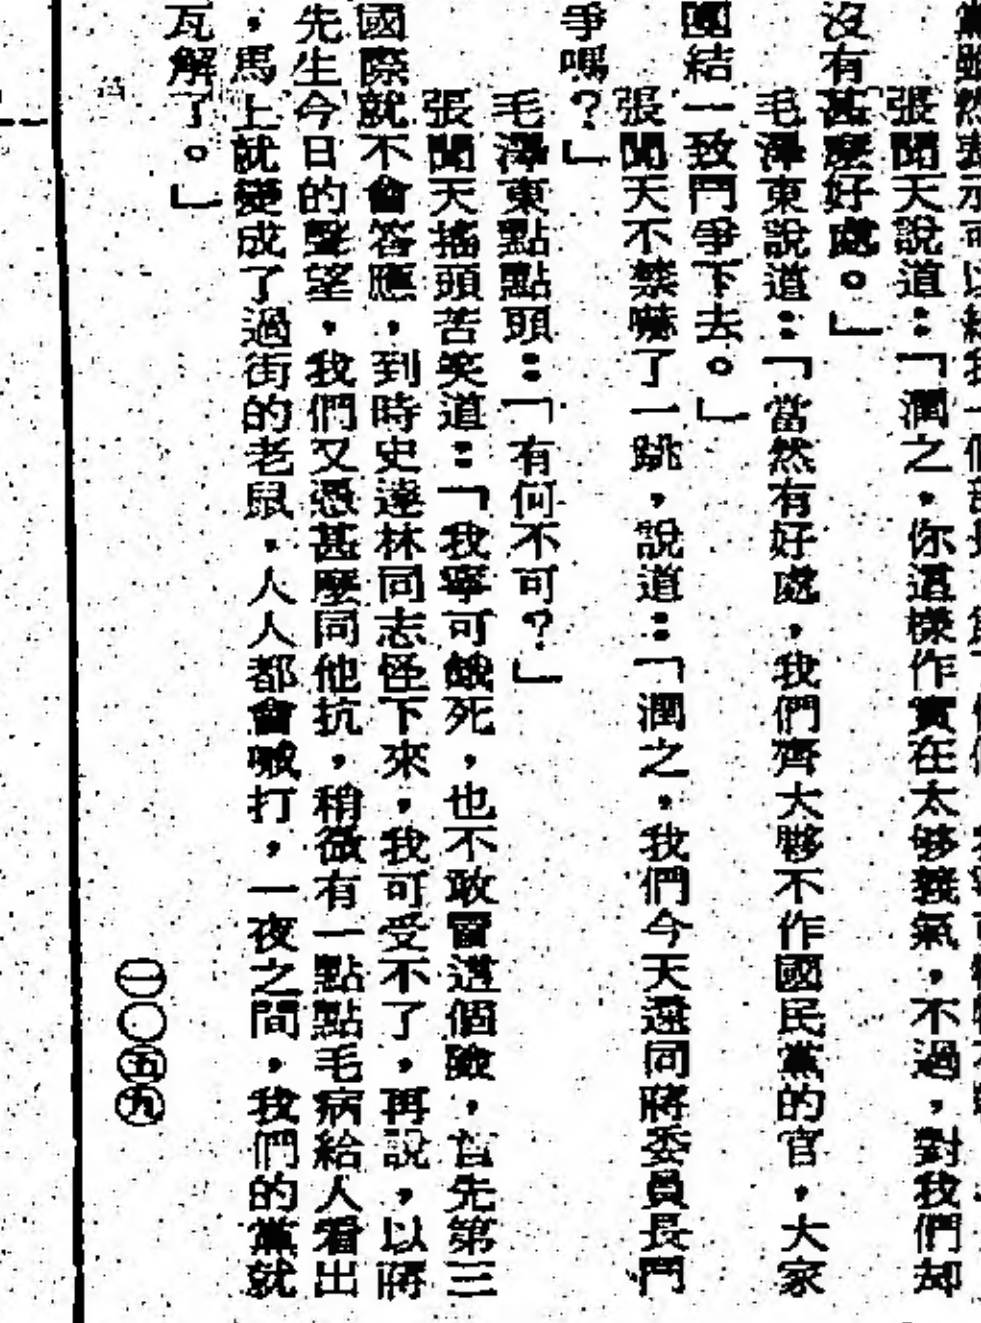 黨雖然表示可以給我一個部長
張聞天說道：「潤之，你這樣作實在太够義氣，不過，對我們却
沒有甚麼好處。」
毛澤東說道：「當然有好處，我們齊大夥不作國民黨的官，大家
團結一致鬥爭下去。」
張聞天不禁嚇了一跳，說道：「潤之，我們今天還同蔣委員長鬥
爭嗎？」
毛澤東點點頭：「有何不可？」
張聞天搖頭苦笑道：「我寧可餓死，也不敢冒這個險，首先第三
國際就不會答應，到時史達林同志怪下來，我可受不了，再說，以蔣
先生今日的聲望，我們又憑甚麼同他抗，稍微有一點點毛病給人看出
，馬上就變成了過街的老鼠，人人都會喊打，一夜之間，我們的黨就
瓦解了。」
一〇五九